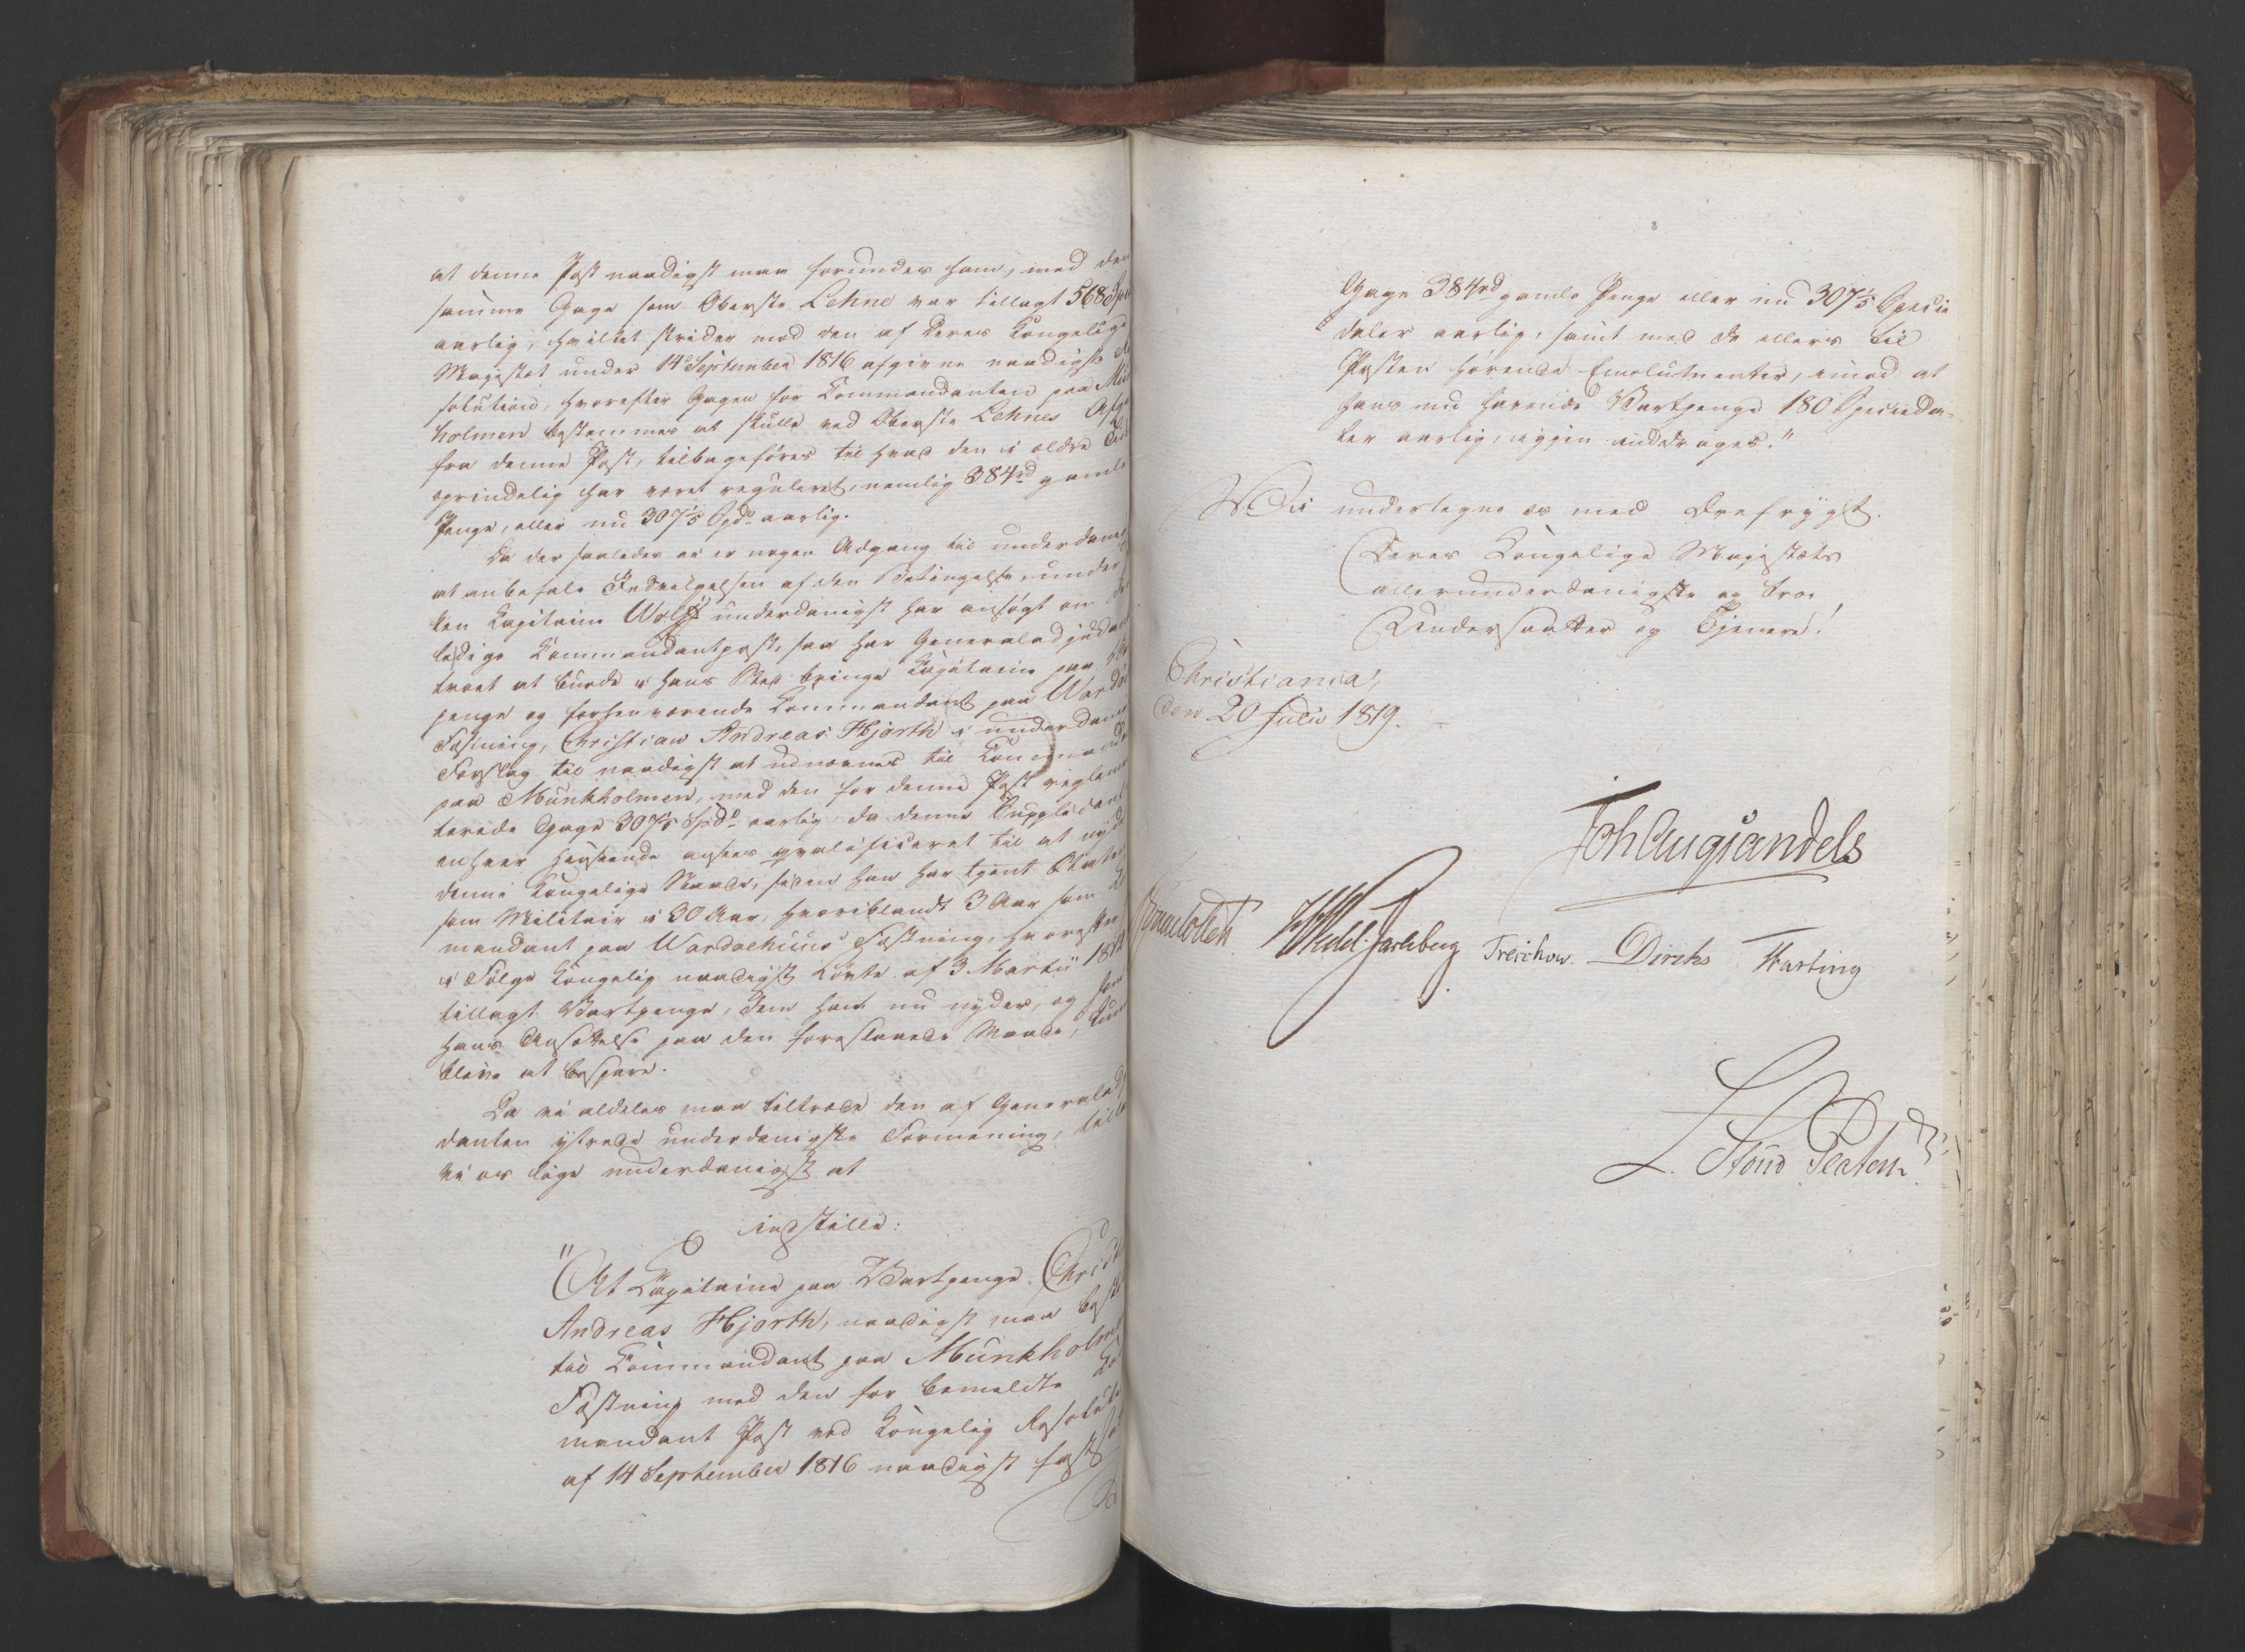 at denne Post naadigst maa forundes ham, med den
samme Gage som Oberste Lehne var tillagt 568 Spd
aarlig, hvilket strider mod den af Deres Kongelige
Majestæt under 14de September 1816 afgivne naadigste Re
solution, hvorefter Gagen for Commandanten paa Munk
holmen bestemmes at skulle ved Oberste Lehnes Afgang
fra denne Post, tilbageføres til hvad den i ældre Tid
oprindelig har været reguleret, nemlig 384 rd gamle
Penge, eller nu 307 1/5 Spd aarlig.
Da der saaledes ei er nogen Adgang til underdanigst
at anbefale Indvilgelsen af den Betingelse, under
ken Capitaine Wolff underdanigst har ansøgt om den
ledige Commandantpost, saa har Generaladjudanten
troet at burde i hans Sted bringe Capitaine paa Vart
penge og forhenværende Commandant paa Wardøe
Fæstning, Christian Andreas Hjorth i underdanigst
Forslag til naadigst at udnævnes til Commandant
paa Munkholmen, med den for denne Post reglemen
terede Gage 307 1/5 Spd aarlig, da denne Supplicant i
enhver Henseende ansees qvalificeret til at nyde
denne Kongelige Naade, siden han har tjent Staten
som Militair i 30 Aar, hvoriblandt 3 Aar som Com
mandant paa Wardøehuus Fæstning, hvorefter
i Følge Kongelig naadigst Ordre af 3 Martii 18
tillagt Vartpenge, dem han nu nyder, og som
hans Ansættelse paa den foreslaaede Maade, kunde
blive at bespare.
Da vi aldeles maa tiltræde den af Generaladju
danten yttrede underdanigste Formening, tillade
vi os lige underdanigst at
indstille:
"At Capitaine paa Vartpenge Christian
Andreas Hjorth, naadigst maa beskikkes
til Commandant paa Munkholmens
Fæstning med den for bemeldte Com
mandant Post ved Kongelig Resolution
af 14 September 1816 naadigst fastsatte
Gage 384 rd gamle Penge eller nu 307 1/5 Specie
daler aarlig, samt med de ellers til
Posten hørende Emolumenter, imod at
hans nu havende Vartpenge 180 Specieda-
ler aarlig, igjen inddrages."
Vi undertegne os med Ærefrygt.
Deres Kongelige Majestæts
allerunderdanigste og troe
Undersaatter og Tjenere!
Christiania,
den 20 Julii 1819.
Joh Aug Sandels
HWedel Jarlsberg Treschow Diriks Fasting
L. Stoud Platou